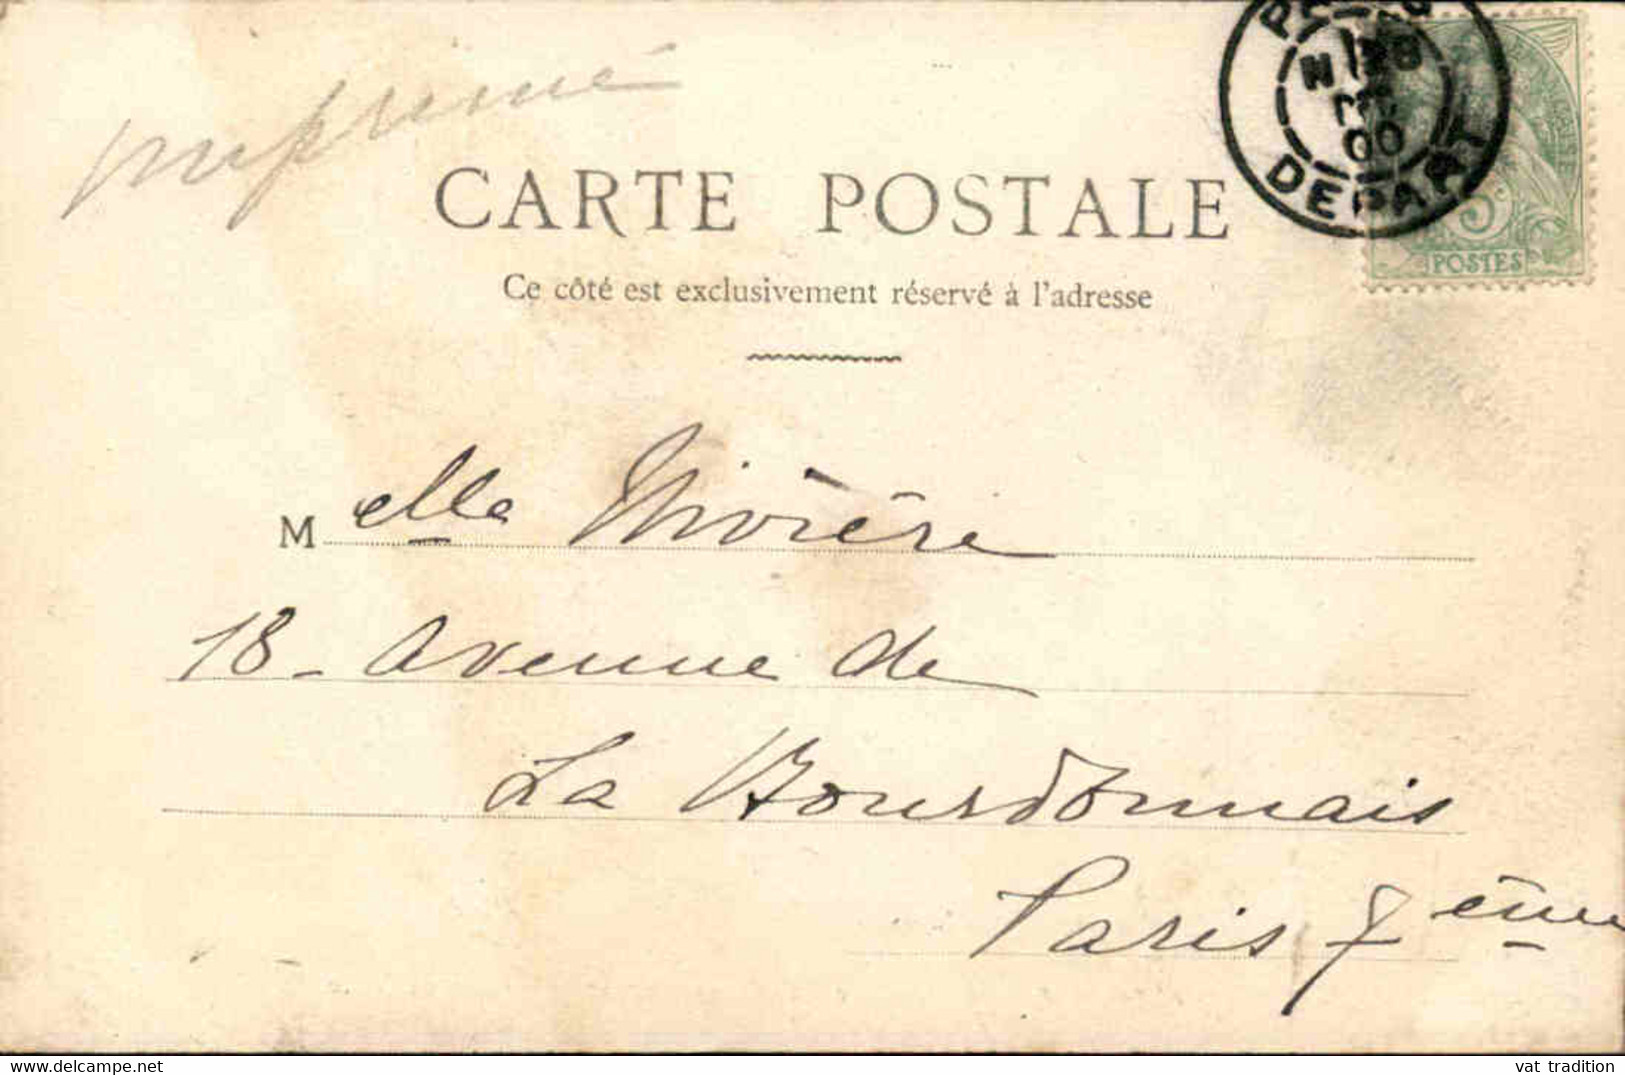 imprimé
CARTE POSTALE
Ce côté est exclusivement réservé à l'adresse
DEPART
00
5c
POSTES
Melle Rivière
18 - Avenue de
La Bourdonnais
Paris 7ème
vat tradition